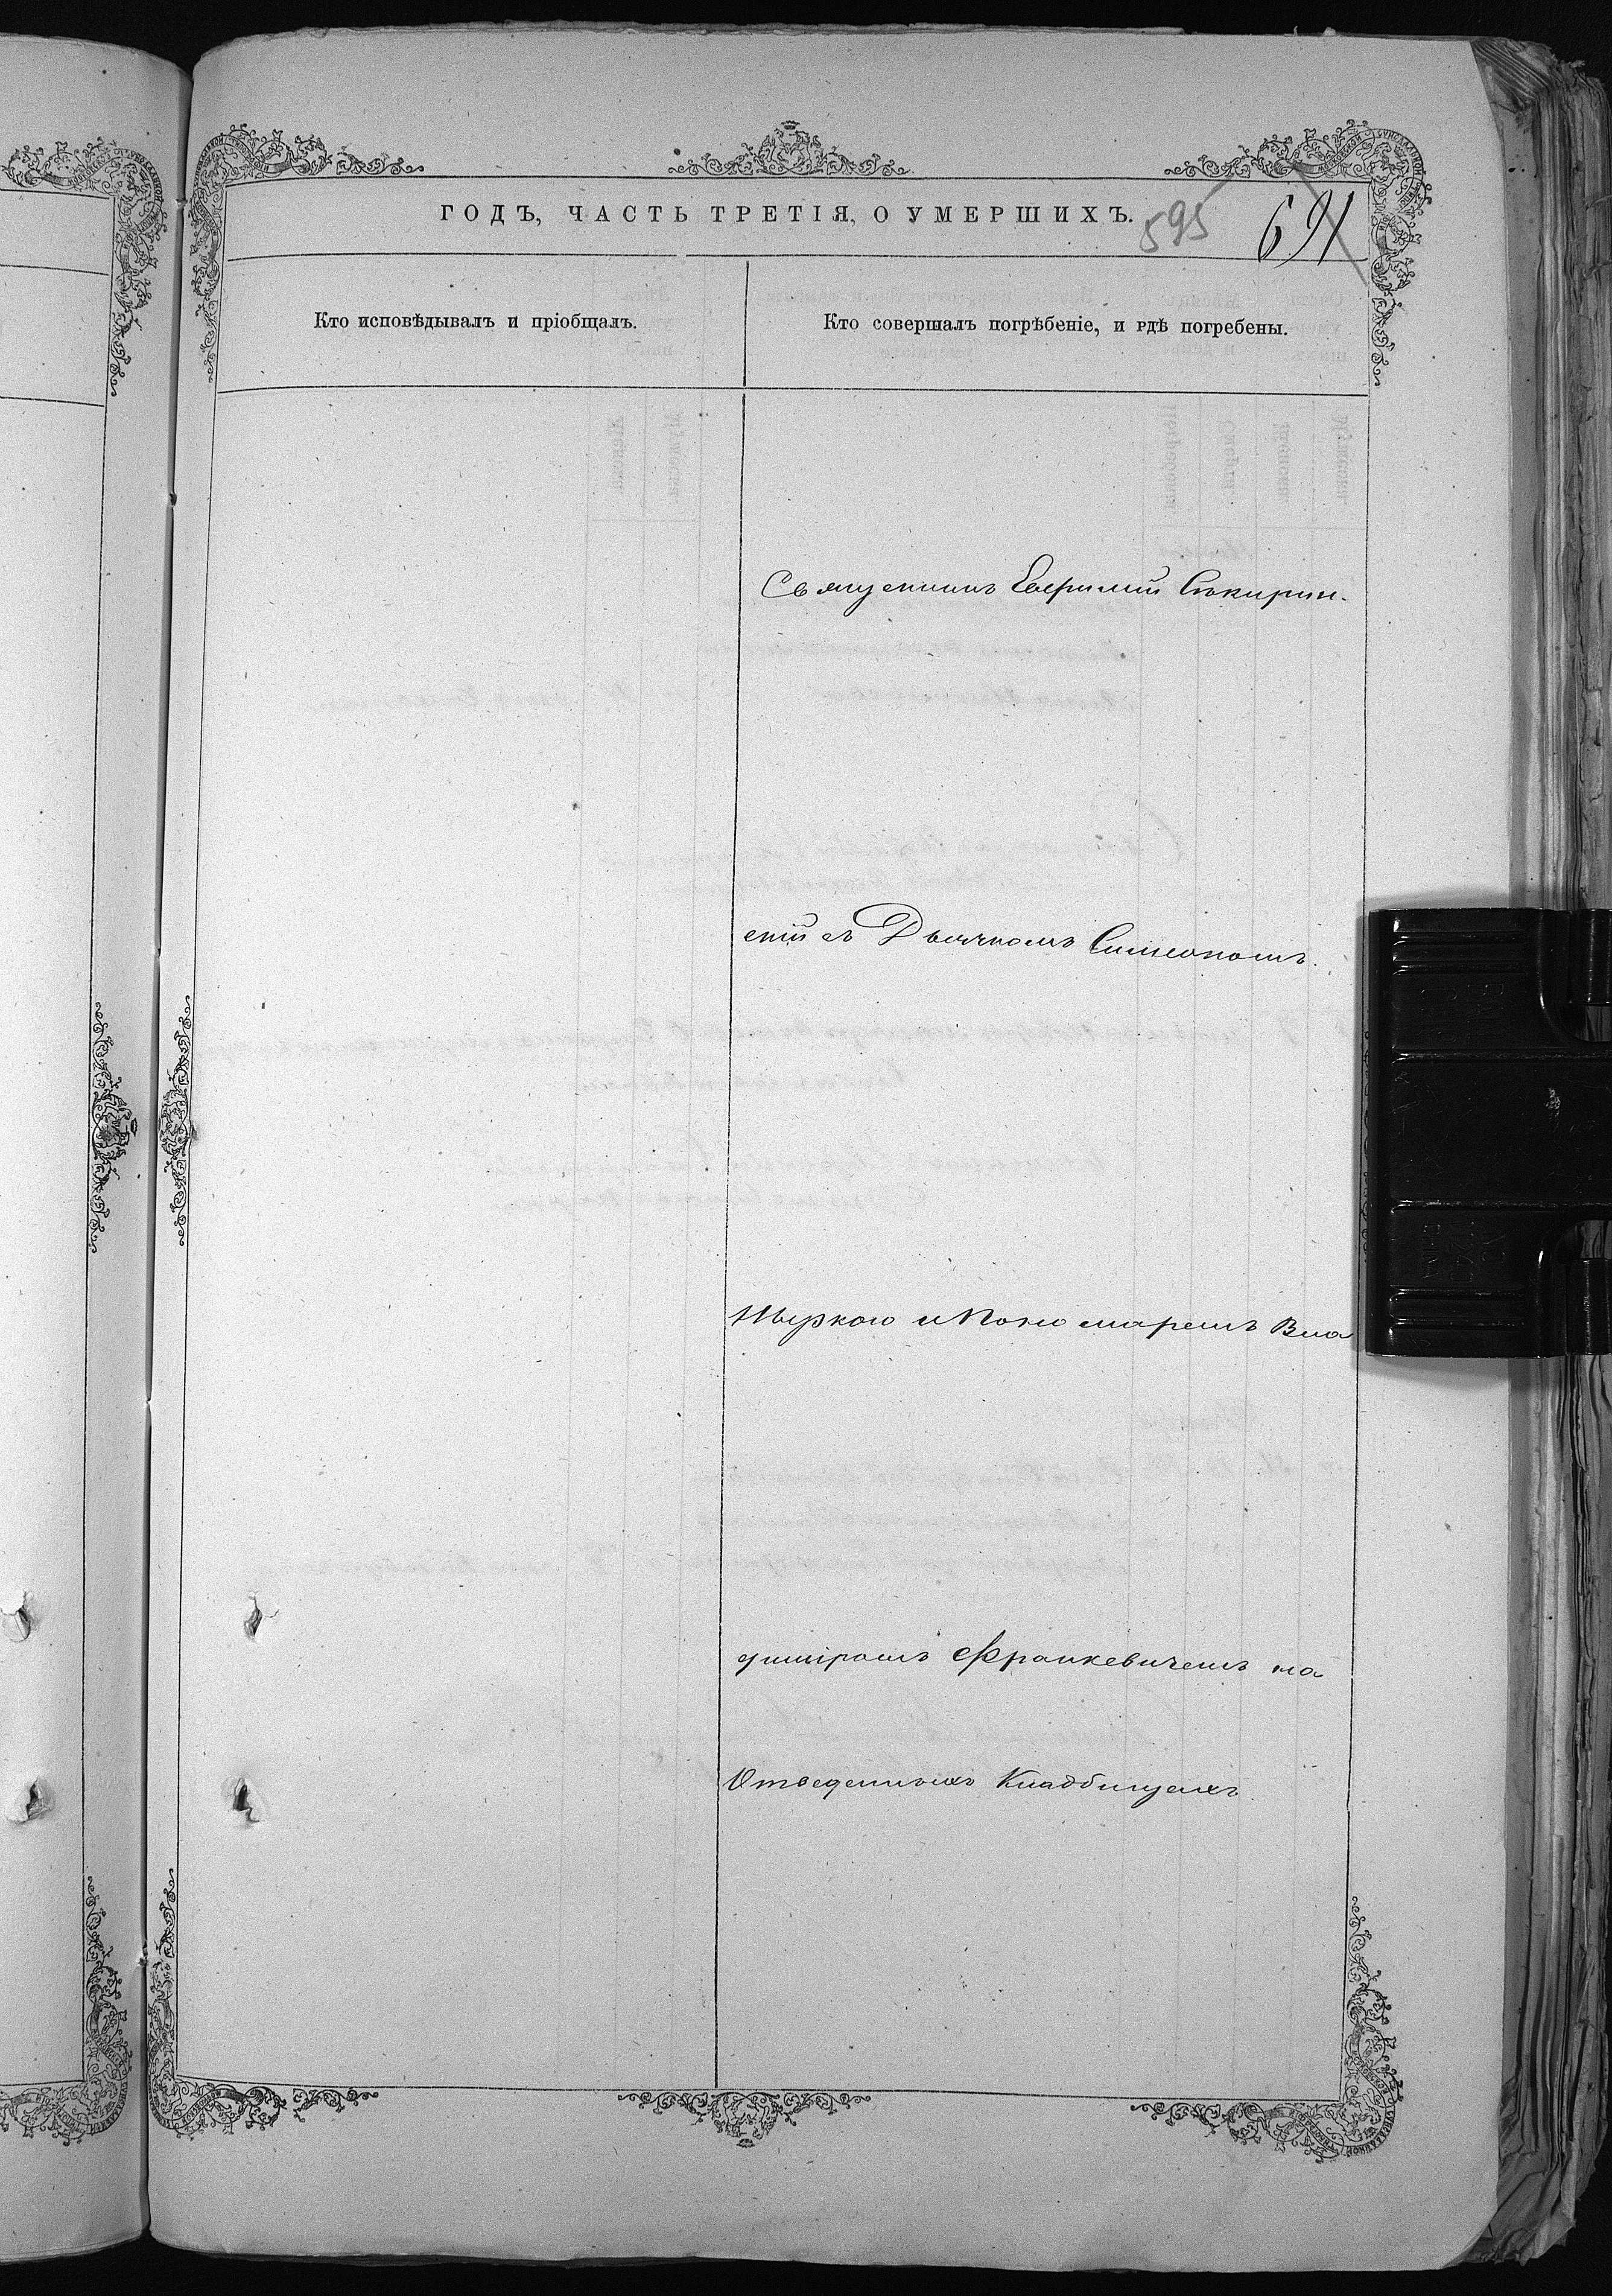 ГОДЪ, ЧАСТЬ ТРЕТІЯ, О УМЕРШИХЪ.
595 691
Кто исповѣдывалъ и пріобщалъ.
Кто совершалъ погрѣбеніе, и гдѣ погребены.
Священникъ Евфимій Сѣкирин-
скій съ Дьячкомъ Симеономъ
и Пономаремъ Вла
диміромъ Франкевичемъ на
Отведенныхъ Кладбищахъ